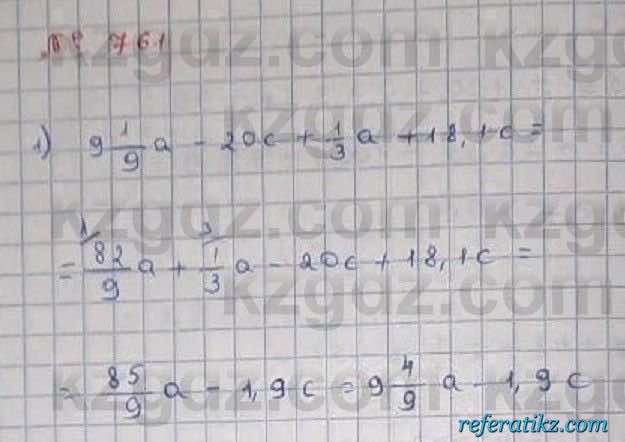 № 761
kzgdz.com
1) 9 1/9 a - 20c + 1/3 a + 18,1c =
kzgdz.com
= 82/9 a + 1/3 a - 20c + 18,1c =
kzgdz.com
= 85/9 a - 1,9c = 9 4/9 a - 1,9c
referatikz.com